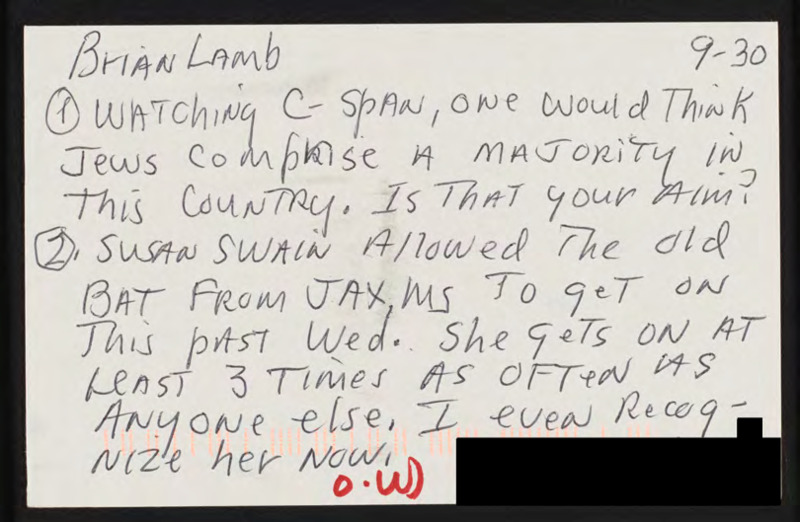 Brian Lamb 9-30
① Watching C-Span, one would Think
Jews comprise A MAJORITY in
This COUNTRY. Is That your Aim?
②. SUSAN SWAIN Allowed The old
BAT FROM JAX, MS To get on
This past Wed. She gets on AT
Least 3 Times AS OFTEN AS
Anyone else. I even Recog-
nize her Now.
O.W)